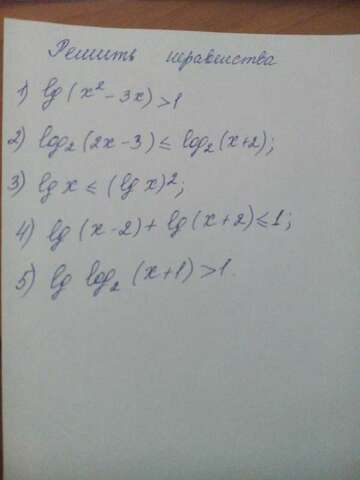 Решить неравенства
1) lg(x² - 3x) > 1
2) log₂(2x - 3) ≤ log₂(x+2);
3) lg x ≤ (lg x)²;
4) lg(x-2) + lg(x+2) ≤ 1;
5) lg log₂(x+1) > 1.